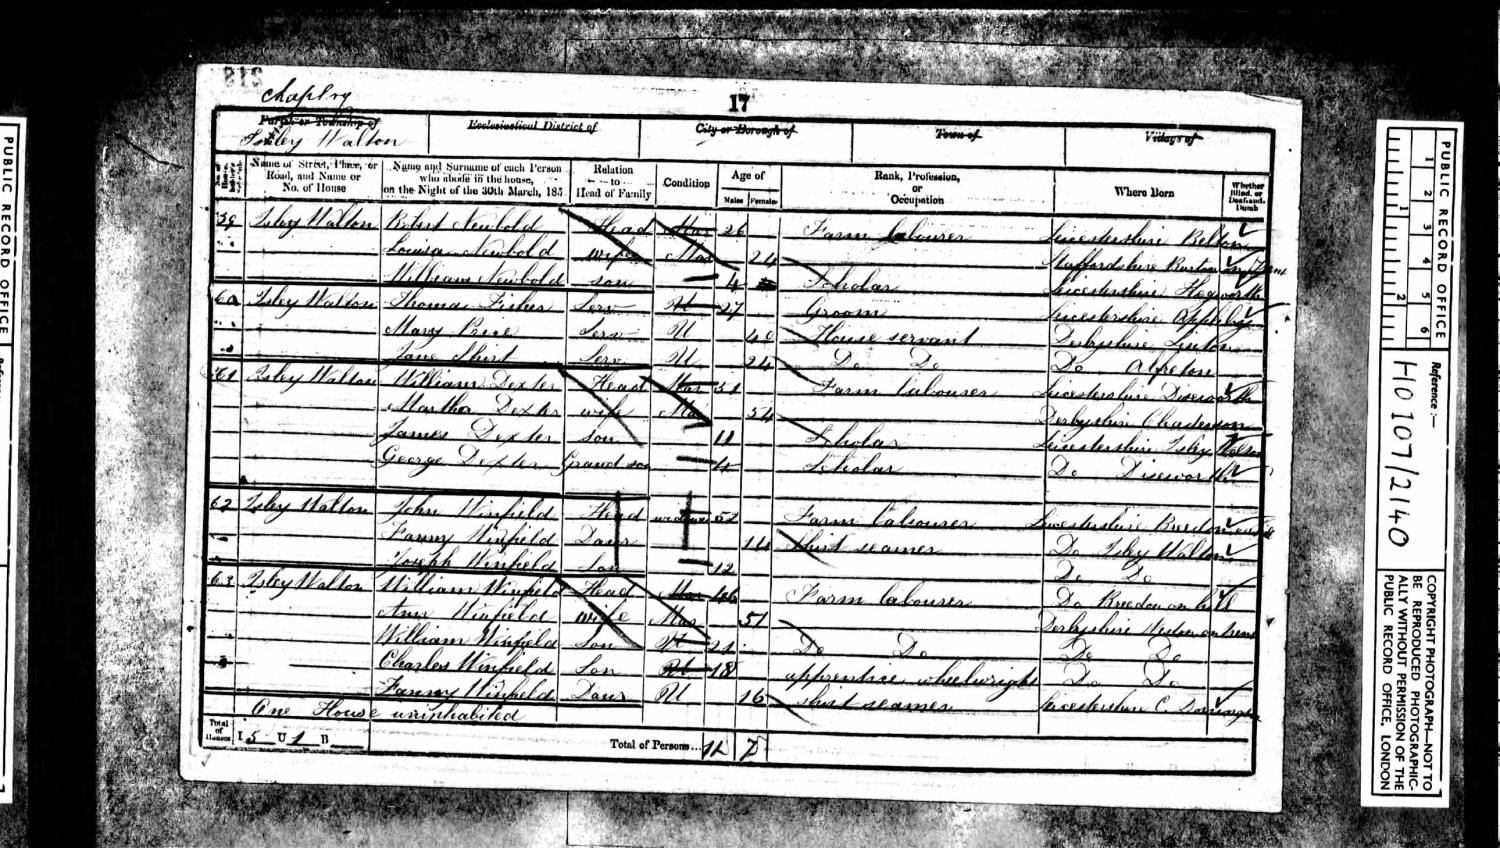 318
chaplry
17
Parish or Township of
Ecclesiastical District of
City or Borough of
Town of
Village of
Isley Walton
Name of Street, Place, or Road, and Name or No. of House
Name and Surname of each Person who abode in the house, on the Night of the 30th March, 185
Relation to Head of Family
Condition
Age of
Males Females
Rank, Profession, or Occupation
Where Born
Whether Blind, or Deaf and Dumb
59 Isley Walton Robert Newbold Head Mar 26 Farm labourer Leicestershire Belton
Louisa Newbold wife Mar 24 Staffordshire Burton on Trent
William Newbold son 4 Scholar Leicestershire
60 Isley Walton Thomas Fisher Serv U 27 Groom Leicestershire Appleby
Mary Serv U 40 House servant Derbyshire
Jane Serv U 24 Do Do Do Alfreton
61 Isley Walton William Dexter Head Mar 51 Farm labourer Leicestershire Diseworth
Martha Dexter wife Mar 54 Derbyshire
James Dexter son 11 Scholar Leicestershire Isley Walton
George Dexter Grand son 4 Scholar Do Diseworth
62 Isley Walton John Winfield Head widower 52 Farm labourer Leicestershire Breedon
Fanny Winfield Daur 14 Shirt seamer Do Isley Walton
Joseph Winfield Son 12 Do Do
63 Isley Walton William Winfield Head Mar 46 Farm labourer Do Breedon on hill
Ann Winfield wife Mar 51 Derbyshire Weston on Trent
William Winfield Son U 21 Do Do Do Do
Charles Winfield Son U 18 apprentice wheelwright Do Do
Fanny Winfield Daur U 16 shirt seamer Leicestershire C Donington
One House uninhabited
Total of Houses I 5 U 1 B
Total of Persons... 12 7
PUBLIC RECORD OFFICE
PUBLIC RECORD OFFICE
1 2 3 4 5 6
1 2
Reference :-
HO 107/2140
COPYRIGHT PHOTOGRAPH—NOT TO BE REPRODUCED PHOTOGRAPHICALLY WITHOUT PERMISSION OF THE PUBLIC RECORD OFFICE, LONDON